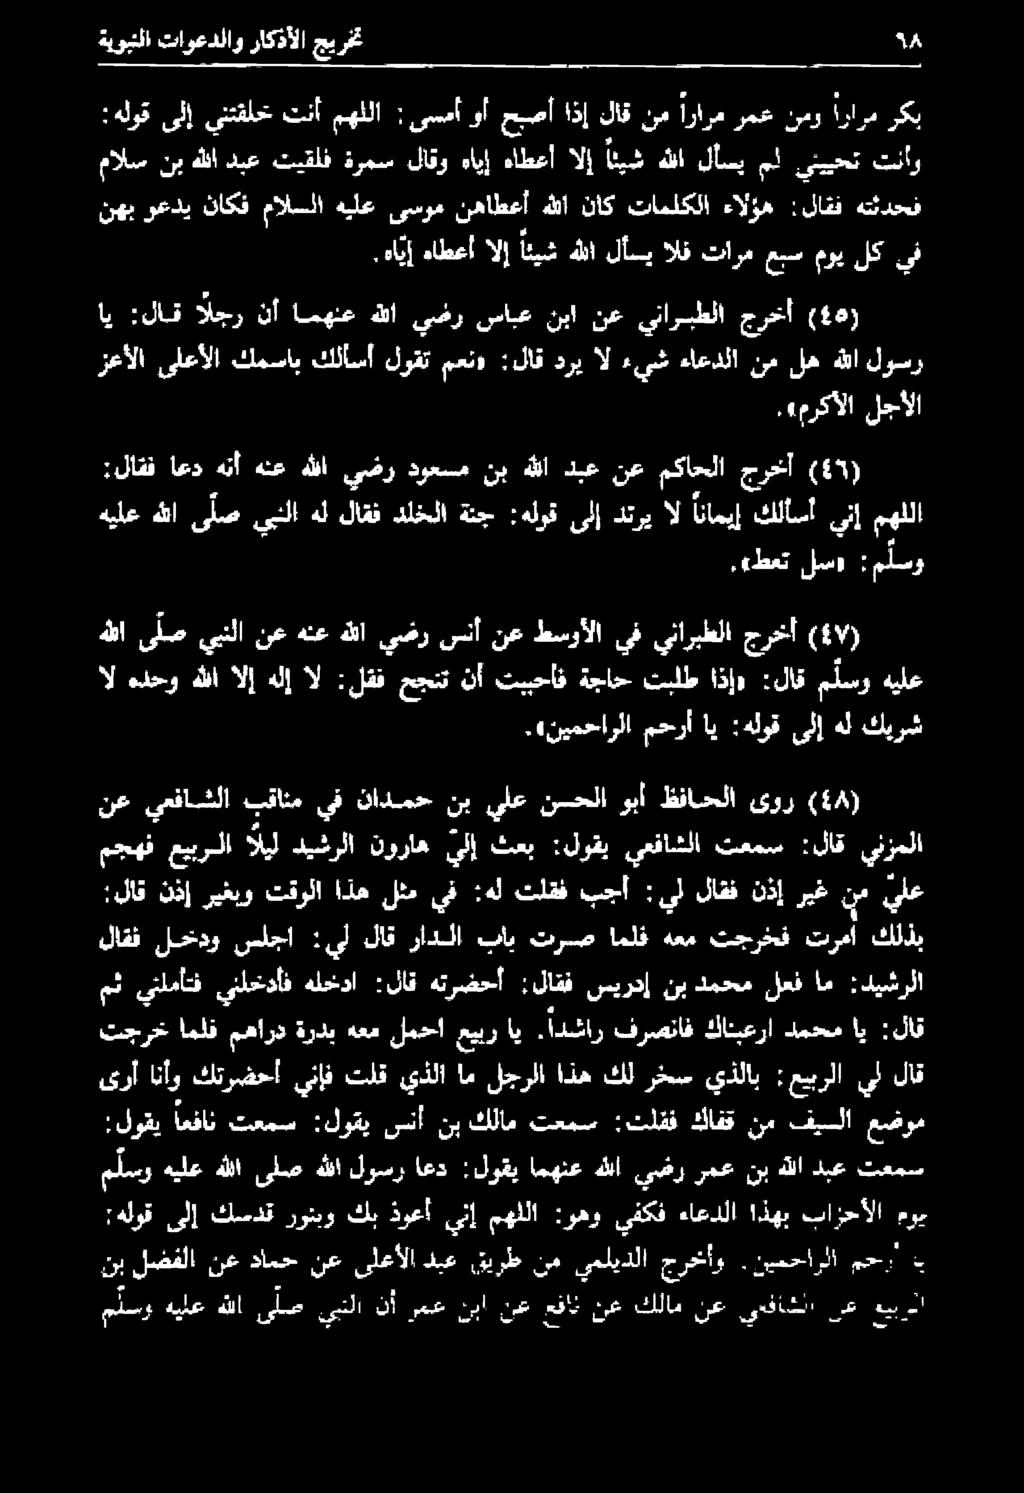 ٦٨ تخريج الأذكار والدعوات النبوية
بكر مراراً ومن عمر مراراً من قال إذا أصبح أو أمسى: اللهم أنت خلقتني إلى قوله:
وأنت تحييني لم يسأل الله شيئاً إلا أعطاه إياه وقال سمرة فلقيت عبد الله بن سلام
فحدثته فقال: هؤلاء الكلمات كان الله أعطاهن موسى عليه السلام فكان يدعو بهن
في كل يوم سبع مرات فلا يسأل الله شيئاً إلا أعطاه إيّاه.
(٤٥) أخرج الطبراني عن ابن عباس رضي الله عنهما أن رجلاً قال: يا
رسول الله هل من الدعاء شيء لا يرد قال: «نعم تقول أسألك باسمك الأعلى الأعز
الأجل الأكرم».
(٤٦) أخرج الحاكم عن عبد الله بن مسعود رضي الله عنه أنه دعا فقال:
اللهم إني أسألك إيماناً لا يرتد إلى قوله: جنة الخلد فقال له النبي صلّى الله عليه
وسلّم: «سل تعط».
(٤٧) أخرج الطبراني في الأوسط عن أنس رضي الله عنه عن النبي صلّى الله
عليه وسلّم قال: «إذا طلبت حاجة فأحببت أن تنجح فقل: لا إله إلا الله وحده لا
شريك له إلى قوله: يا أرحم الراحمين».
(٤٨) روى الحافظ أبو الحسن علي بن حمدان في مناقب الشافعي عن
المزني قال: سمعت الشافعي يقول: بعث إليّ هارون الرشيد ليلاً الربيع فهجم
عليّ من غير إذن فقال لي: أجب فقلت له: في مثل هذا الوقت وبغير إذن قال:
بذلك أُمرت فخرجت معه فلما صرت باب الدار قال لي: اجلس ودخل فقال
الرشيد: ما فعل محمد بن إدريس فقال: أحضرته قال: ادخله فأدخلني فتأملني ثم
قال: يا محمد ارعبناك فانصرف راشداً. يا ربيع احمل معه بدرة دراهم فلما خرجت
قال لي الربيع: بالذي سخر لك هذا الرجل ما الذي قلت فإني أحضرتك وأنا أرى
موضع السيف من قفاك فقلت: سمعت مالك بن أنس يقول: سمعت نافعاً يقول:
سمعت عبد الله بن عمر رضي الله عنهما يقول: دعا رسول الله صلى الله عليه وسلّم
يوم الأحزاب بهذا الدعاء فكفي وهو: اللهم إني أعوذ بك وبنور قدسك إلى قوله:
يا أرحم الراحمين. وأخرج الديلمي من طريق عبد الأعلى عن حماد عن الفضل بن
الربيع عن الشافعي عن مالك عن نافع عن ابن عمر أن النبي صلّى الله عليه وسلّم